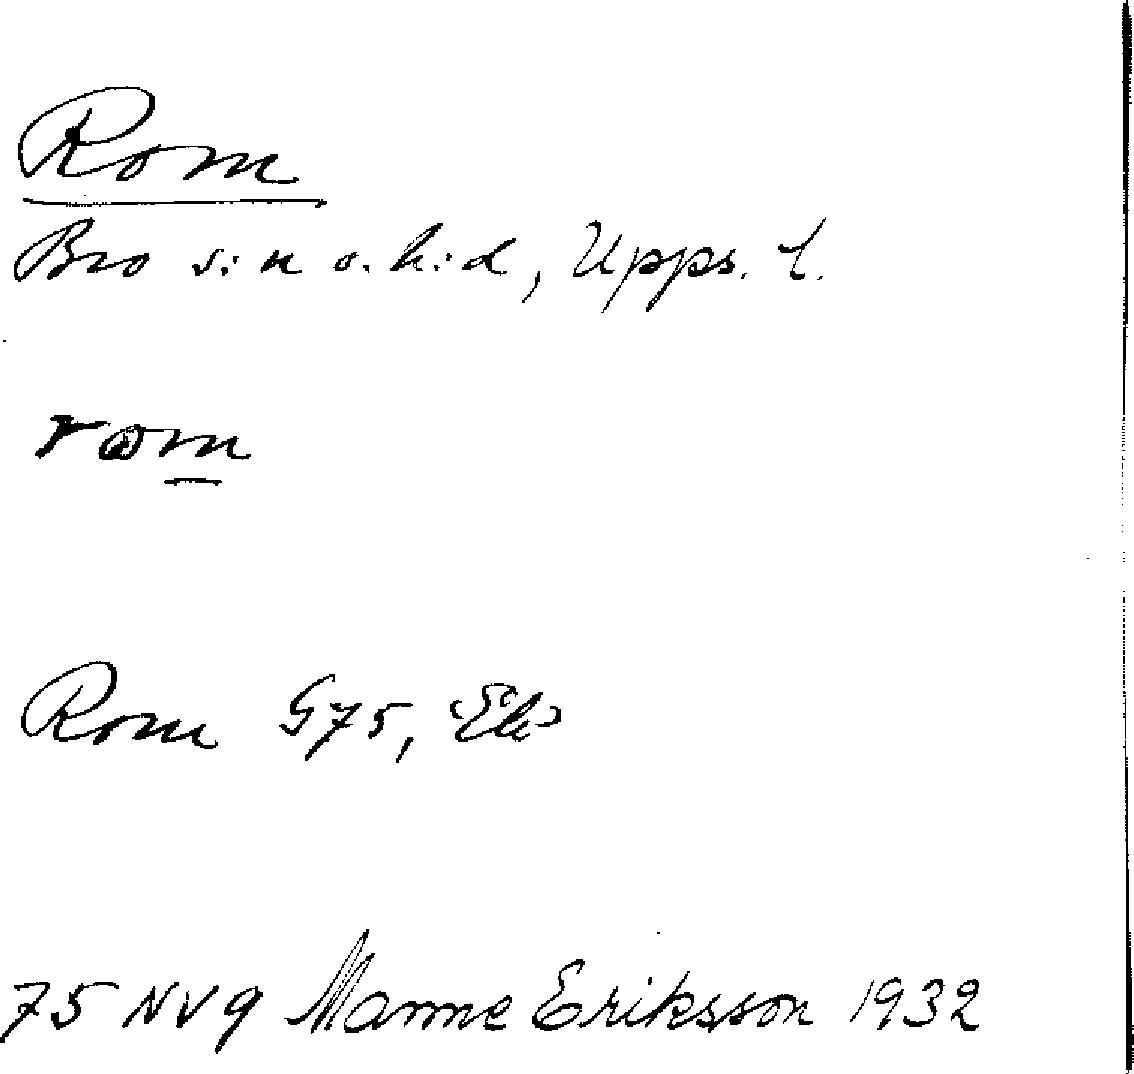 Rom
Bro s:n o. h:d, Upps. l.
rom
Rom G75, Ek
75 NV9 Manne Eriksson 1932